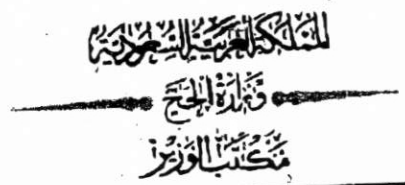 المملكة العربية السعودية
وزارة الحج
مكتب الوزير